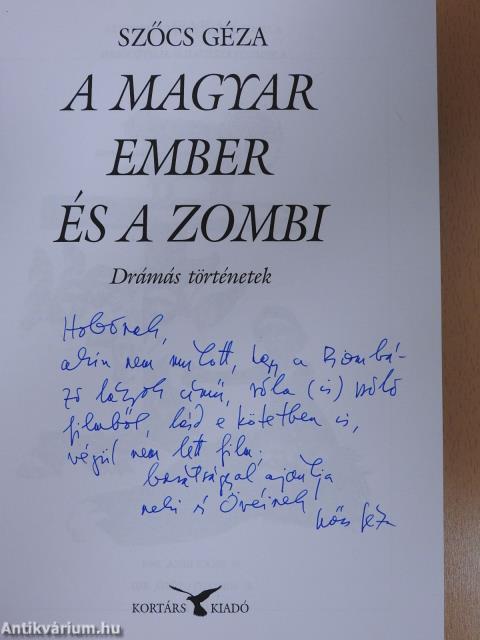 SZŐCS GÉZA
A MAGYAR
EMBER
ÉS A ZOMBI
Drámás történetek
Hobónak,
akin nem múlott, hogy a
című, róla (is) szóló
filmből, lásd e kötetben is,
végül nem lett film,
barátsággal ajánlja
neki s Övéinek
Szőcs Géza
KORTÁRS KIADÓ
Antikvárium.hu